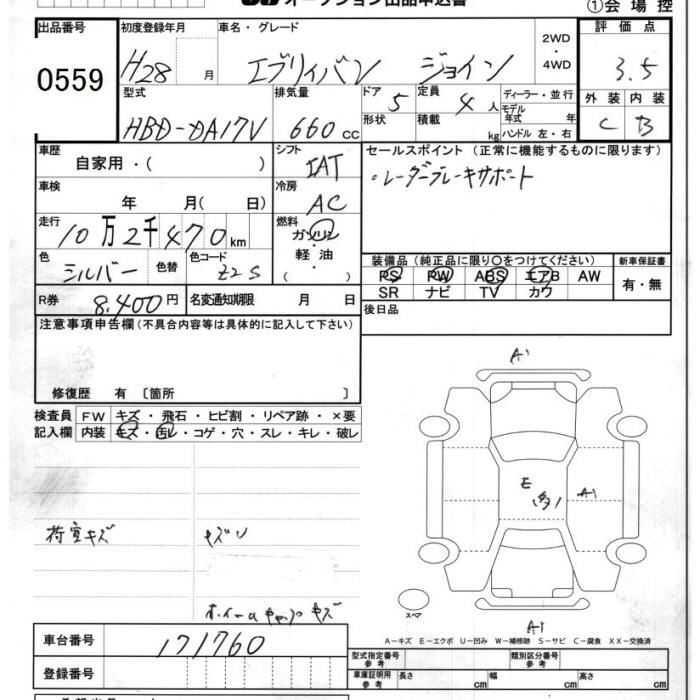 オークション出品申込書
①会場控
出品番号 0559
初度登録年月 H28 月
車名・グレード エブリィバン ジョイン
2WD・4WD
評価点 3.5
外装 C 内装 B
型式 HBD-DA17V
排気量 660 cc
ドア 5 形状
定員 4 人 積載 kg
ディーラー・並行
モデル年式 年
ハンドル 左・右
車歴 自家用・( )
シフト IAT
セールスポイント (正常に機能するものに限ります)
・レーダーブレーキサポート
車検 年 月( 日)
冷房 AC
走行 10万2千470 km
燃料 ガソリン・軽油 ( )
色 シルバー 色替 色コード Z2S
装備品 (純正品に限り○をつけてください)
PS PW ABS エアB AW
SR ナビ TV カワ
新車保証書 有・無
R券 8,400円 名変通知期限 月 日
後日品
注意事項申告欄 (不具合内容等は具体的に記入して下さい)
修復歴 有 〔箇所 〕
検査員記入欄
FW キズ・飛石・ヒビ割・リペア跡・×要
内装 キズ・汚レ・コゲ・穴・スレ・キレ・破レ
荷室キズ
ホイールキャップキズ
A1
E
A1
A1
スペア
A-キズ E-エクボ U-凹み W-補修跡 S-サビ C-腐食 XX-交換済
車台番号 171760
登録番号
型式指定番号 参考
類別区分番号 参考
車庫証明用 参考 長さ cm 幅 cm 高さ cm